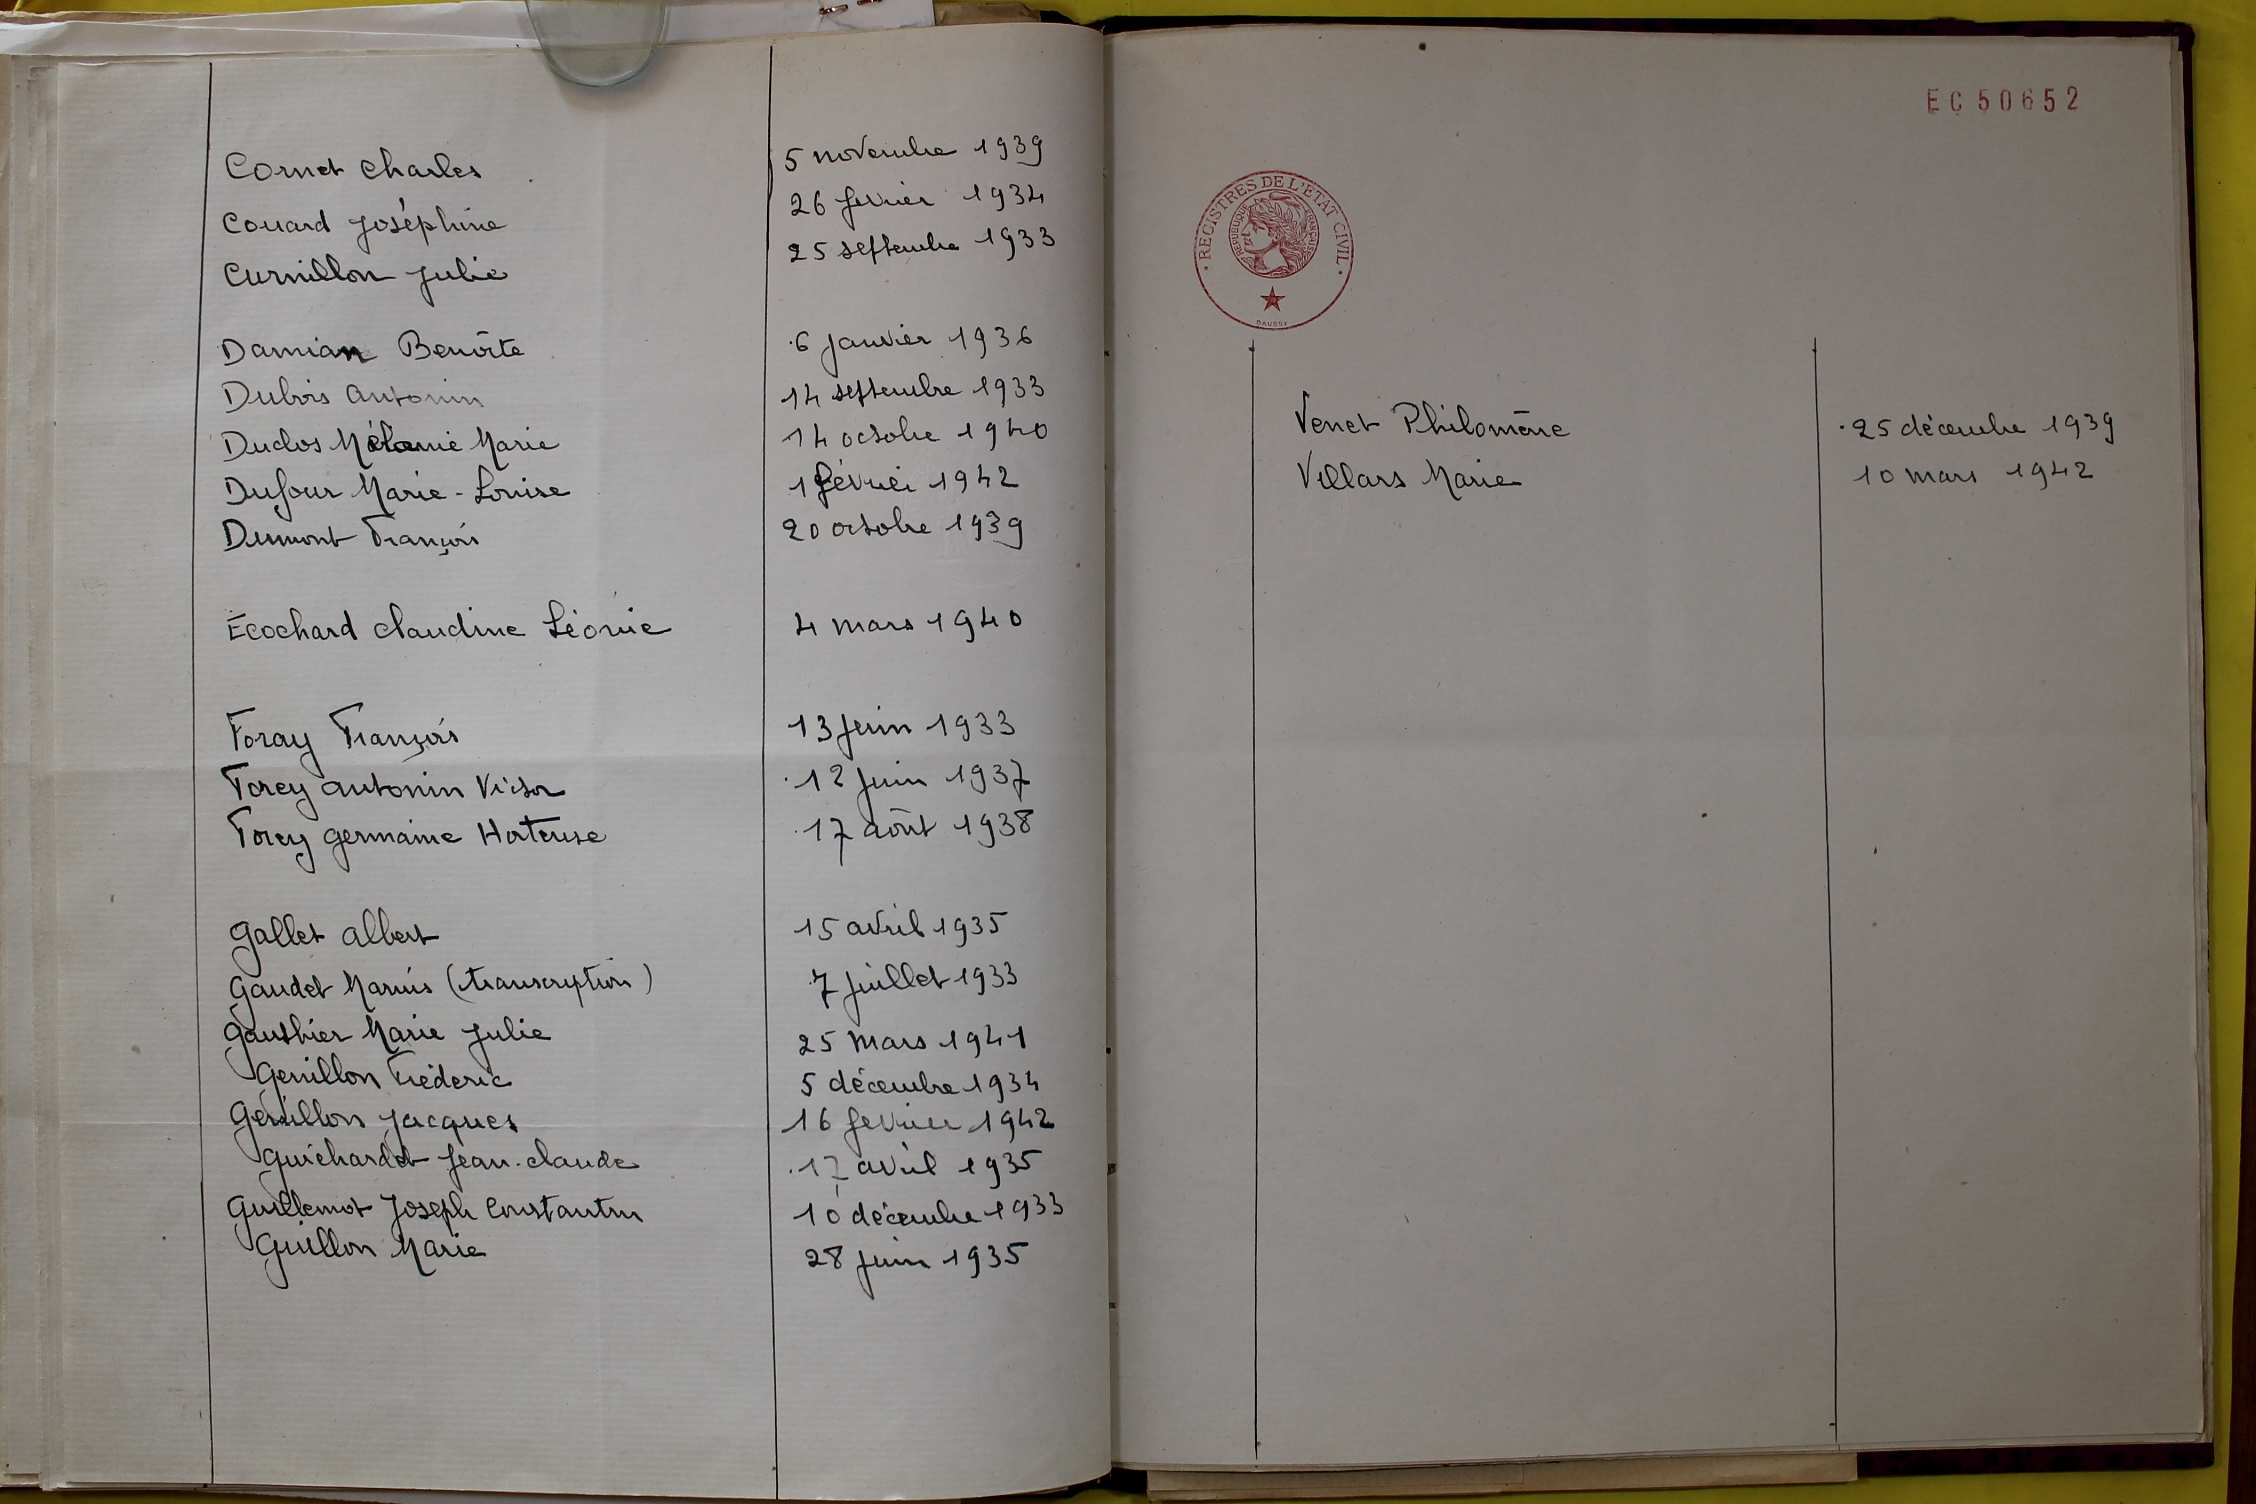 Cornet Charles 5 novembre 1939
Couard Joséphine 26 fevrier 1934
Curnillon Julie 25 septembre 1933
Damian Benoîte 6 janvier 1936
Dubois Antonin 14 septembre 1933
Duclos Mélanie Marie 14 octobre 1940
Dufour Marie-Louise 1 février 1942
Dumont François 20 octobre 1939
Écochard Claudine Léonie 4 mars 1940
Foray François 13 juin 1933
Forey Antonin Victor 12 juin 1937
Forey Germaine Hortense 17 août 1938
Gallet Albert 15 avril 1935
Gaudet Marius (transcription) 7 juillet 1933
Gauthier Marie Julie 25 mars 1941
Genillon Fréderic 5 décembre 1934
Genillon Jacques 16 fevrier 1942
Guichardet Jean-Claude 17 avril 1935
Guillemot Joseph Constantin 10 décembre 1933
Guillon Marie 28 juin 1935
EC50652
REGISTRES DE L'ETAT CIVIL
REPUBLIQUE FRANÇAISE
Venet Philomène 25 décembre 1939
Villars Marie 10 mars 1942